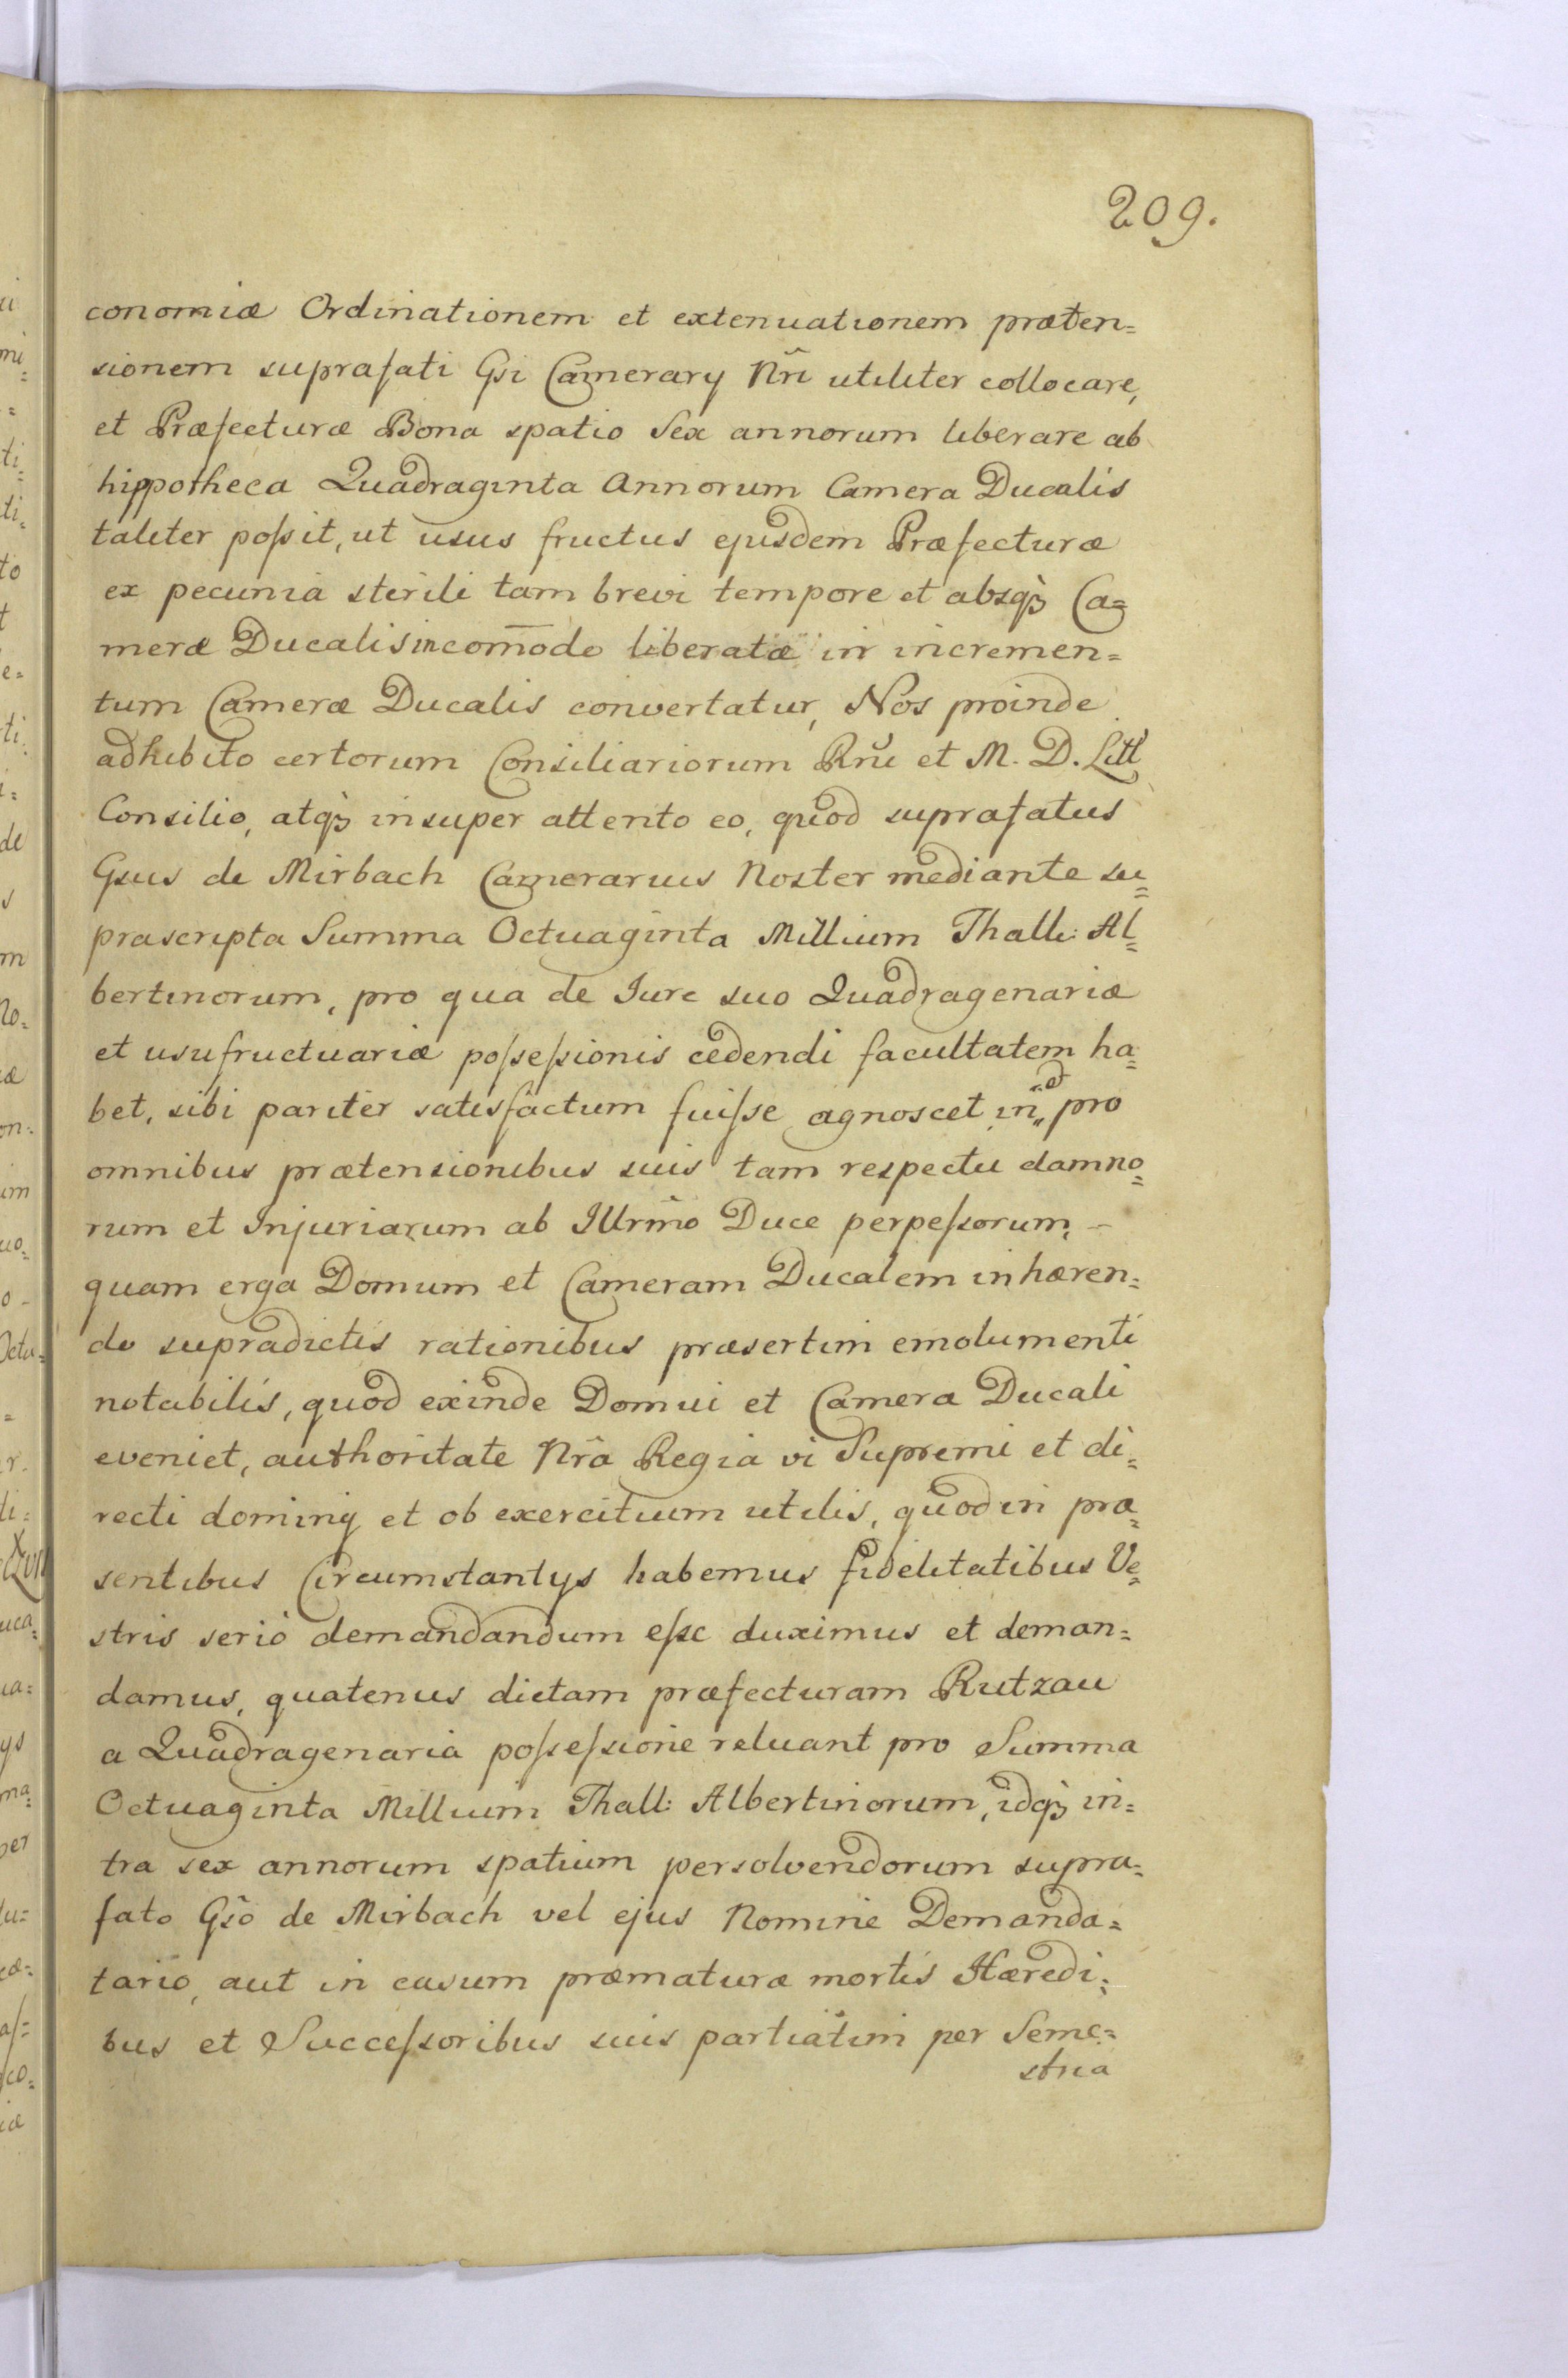 209.
conomiæ Ordinationem et extenuationem præten=
sionem suprafati Gsi Camerarÿ Nr̃i utiliter collocare,
et Præfecturæ Bona spatio Sex annorum liberare ab
hippotheca Quadraginta Annorum Camera Ducalis
taliter poſsit, ut usus fructus ejusdem Præfecturæ
ex pecunia sterili tam brevi tempore et absqꝫ Ca=
meræ Ducalis incom̄odo liberatæ in incremen=
tum Cameræ Ducalis convertatur, Nos proinde
adhibito certorum Consiliariorum Rñi et M. D. Litt
Consilio, atqꝫ insuper attento eo, quod suprafatus
Gsus de Mirbach Camerarius Noster mediante su=
prascripta Summa Octuaginta Millium Thall: Al=
bertinorum, pro qua de Iure suo Quadragenariæ
et usufructuariæ poſseſsionis cedendi facultatem ha=
bet, sibi pariter satisfactum fuiſse agnoscet in et pro
omnibus prætensionibus suis tam respectu damno=
rum et Injuriarum ab Illrm̃o Duce perpeſsorum,
quam erga Domum et Cameram Ducalem inhæren=
do supradictis rationibus præsertim emolumenti
notabilis, quod exinde Domui et Cameræ Ducali
eveniet, authoritate Nr̃a Regia vi Supremi et di=
recti dominÿ et ob exercitium utilis, quod in præ=
sentibus Circumstantÿs habemus fidelitatibus Ve=
stris serio demandandum eſse duximus et deman=
damus, quatenus dictam præfecturam Rutzau
a Quadragenaria poſseſsione reluant pro Summa
Octuaginta Millium Thall: Albertinorum, idqꝫ in=
tra sex annorum spatium persolvendorum supra=
fato Gsõ de Mirbach vel ejus Nomine Demanda=
tario, aut in casum præmaturæ mortis Hæredi=
bus et Succeſsoribus suis partiatim per Seme=
stria